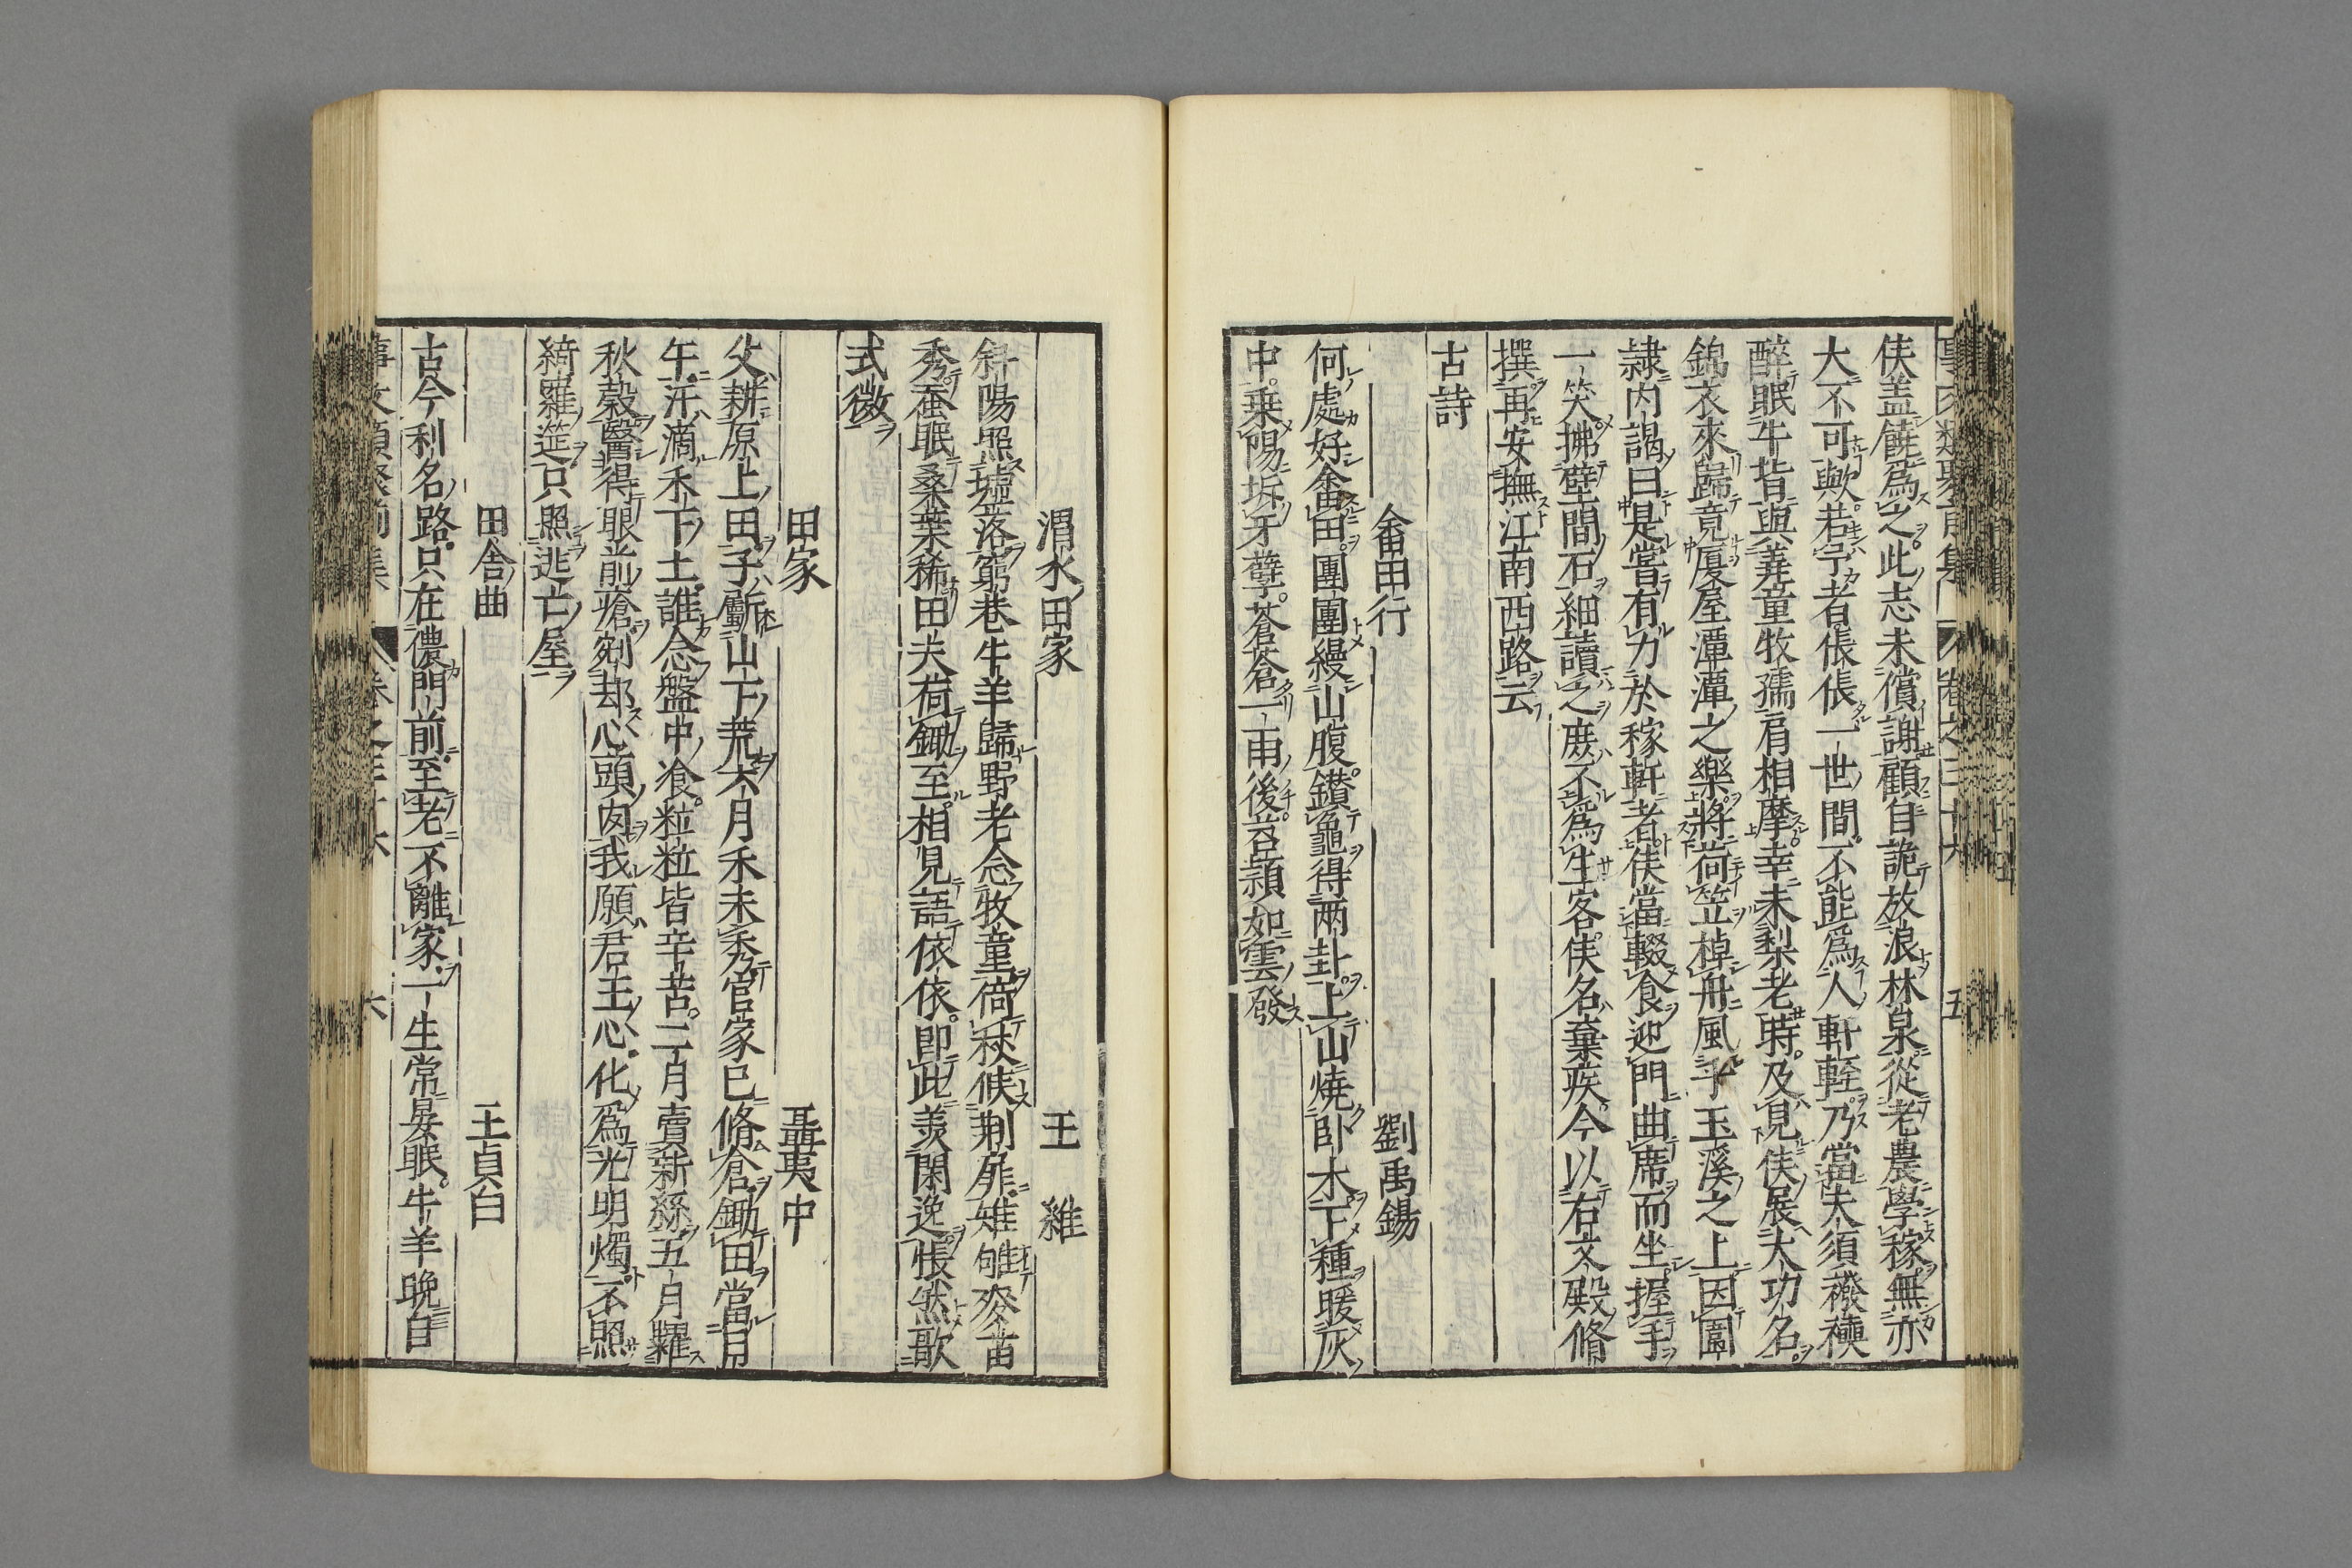 事文類聚前集 卷之三十六 五
侠盖饒爲之此志未償謝顧自詭放浪林泉從老農學稼無亦
大不可歟若予者倀倀一世間不能爲人軒輊乃當夫須襏襫
醉眠牛背與蕘童牧孺肩相摩幸未梨老時及見侠展大功名
錦衣來歸竟厦屋潭潭之樂將荷笠棹舟風乎玉溪之上因圉
隷内謁曰是嘗有力於稼軒者侠當輟食迎門曲席而坐握手
一笑拂壁間石細讀之庶不爲生客侠名棄疾今以右文殿脩
撰再安撫江南西路云
古詩
畬田行 劉禹錫
何處好畬田團團縵山腹鑽龜得兩卦上山燒卧木下種暖灰
中乗陽坼牙蘖蒼蒼一雨後苕頴如雲發
渭水田家 王維
斜陽照墟落窮巷牛羊歸野老念牧童倚秋候荆扉雉雊麥苗
秀蚕眠桑葉稀田夫荷鋤至相見語依依即此羨閑逸悵然歌
式微
田家 聶夷中
父耕原上田子斸山下荒六月禾未秀官家已脩倉鋤田當日
午汗滴禾下土誰念盤中飡粒粒皆辛苦二月賣新絲五月糶
秋穀醫得眼前瘡剜却心頭肉我願君王心化爲光明燭不照
綺羅筵只照逃亡屋
田舎曲 王貞白
古今利名路只在儂門前至老不離家一生常晏眠牛羊晩自
事文類聚前集 卷之三十六 六